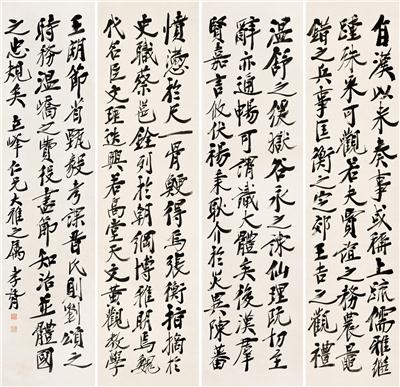 自漢以來奏事或稱上疏儒雅繼
踵殊采可觀若夫賈誼之務農鼂
錯之兵事匡衡之定郊王吉之觀禮
溫舒之緩獄谷永之諫仙理既切至
辭亦通暢可謂識大體矣後漢羣
賢嘉言攸伏楊秉耿介於災異陳蕃
憤懣於尺一骨鯁得焉張衡指摘於
史職蔡邕銓列於朝綱博雅明焉魏
代名臣文理迭興若高堂天文黃觀教學
王朗節省甄毅考課晉氏則劉頌之
時務溫嶠之費役盡節知治並體國
之忠規矣 立峰仁兄大雅之屬 孝胥